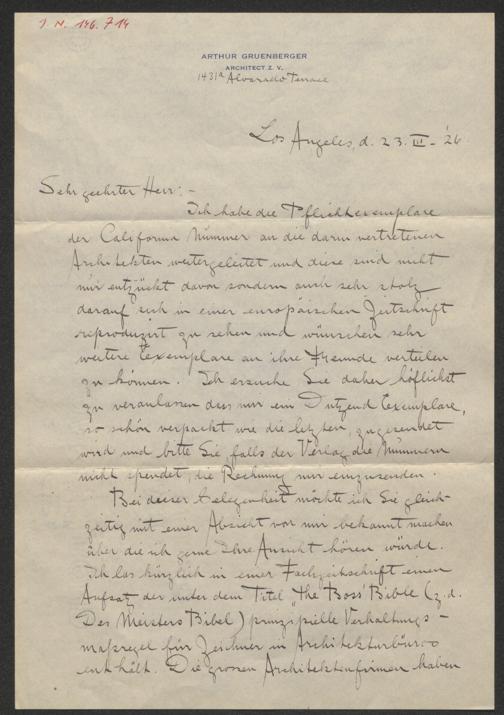 I. N. 146.714
ARTHUR GRUENBERGER
ARCHITECT Z. V.
1431a Alvarado Terrace
Los Angeles, d. 23. III - '26
Sehr geehrter Herr: -
Ich habe die Pflichtexemplare
der California Nummer an die darin vertretenen
Architekten weitergeleitet und diese sind nicht
nur entzückt davon sondern auch sehr stolz
darauf sich in einer europäischen Zeitschrift
reproduziert zu sehen und wünschen sehr
weitere Exemplare an ihre Freunde verteilen
zu können. Ich ersuche Sie daher höflichst
zu veranlassen dass mir ein Dutzend Exemplare,
so schön verpackt wie die letzten, zugesendet
wird und bitte Sie, falls der Verlag die Nummern
nicht spendet, die Rechnung mir einzusenden.
Bei dieser Gelegenheit möchte ich Sie gleich-
zeitig mit einer Absicht von mir bekannt machen
über die ich gerne Ihre Ansicht hören würde.
Ich las kürzlich in einer Fachzeitschrift einen
Aufsatz der unter dem Titel "The Boss' Bible (z. d.
Des Meisters Bibel) prinzipielle Verhaltungs-
maßregel für Zeichner in Architekturbüros
enthält. Die grossen Architektenfirmen haben